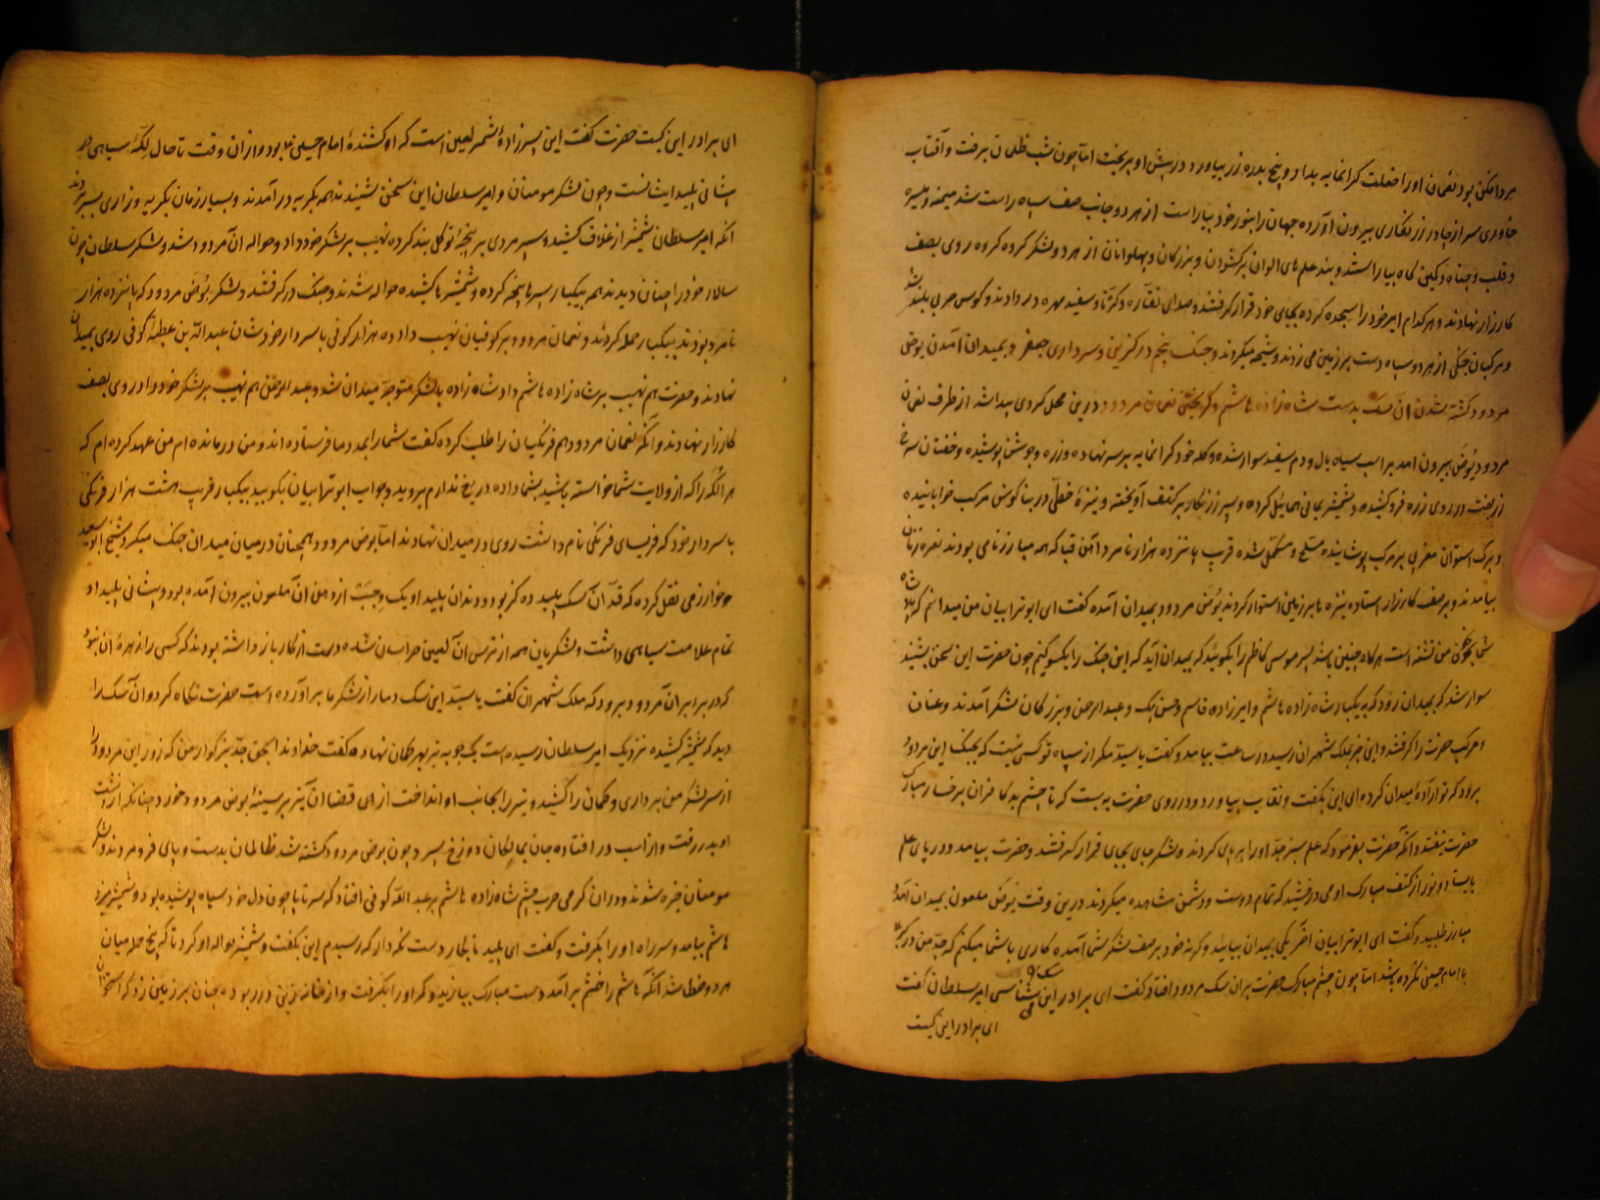 مردانکی بود نعمان اورا خلعت کرانمایه بداد و پنج بدره زر بیاورد در پیش او بریخت اما چون شب ظلمان برفت و آفتاب
خاوری سر از چادر زرنکاری بیرون آورده جهان را بنور خود بیاراست از هر دو جانب صف سپاه راست شد میمنه و میسره
و قلب و جناح و کمین کاه بیاراستند و بند علم های الوان برکشودن و بزرکان و پهلوانان از هر دو لشکر کرده کروه روی بصف
کارزار نهادند و هر کدام امیر خود را سجده کرده بجای خود قرار کرفتند و صدای نقاره و کرنا و سفید مهره در دادند و کوس حربی بلند شد
و مرکبان جنکی از هر دو سپاه دست بر زمین می زدند و شیحه میکردند و جنک پنجم در کزین و سرداری جعفر و بمیدان آمدن بوض
مردود کشته شدن آن سک بدست شاه زاده هاشم و کریختن نعمان مردود درین محل کردی پیدا شد از طرف نعمان
مردود بوض بیرون آمد بر اسب سیاه یال و دم سفید سوار شده و کله خود کرانمایه بر سر نهاده و زره و جوشن پوشیده و خفتان سرخ
زربفت در روی زره فرو کشیده و شمشیر یمانی حمایل کرده و سپر زرنکار بر کتف آویخته و نیزه خطی در بنا کوش مرکب خوابانیده
و برک استوان مغربی بر مرکب پوشانیده مسلح و مکمل شده قریب پانزده هزار نامرد آهن قبا که همه مبارز نامی بودند نعره زنان
بیامدند و بر صف کارزار استاده نیزه ها بر زمین استوار کردند بوض مردود بمیدان آمده کفت ای ابوترابیان من میدانم که پادشاه
شما بخون من تشنه است هرکاه چنین باشد پسر موسی کاظم را بکوئید که بمیدان آید که این جنک را یکسو کنیم چون حضرت این سخن بشنید
سوار شد که بمیدان رود که به یکبار شاه زاده هاشم و امیرزاده قاسم و حسن بیک و عبدالرحمن و بزرکان لشکر آمدند و عنان
مرکب حضرت را کرفتند و این خبر بملک شهران رسید در ساعت بیامد و کفت یا سید مکر از سپاه تو کسی نیست که بجنک این مردود
برود که تو اراده میدان کرده ای این بکفت و نقاب بیاورد و در روی حضرت به بست که تا چشم بد کافران بر رخسار مبارک
حضرت نیفتد و انکه حضرت بفرمود که علم سبز جد او را بر پای کردند و لشکر جای بجای قرار کرفتند و حضرت بیامد و در پای علم
بایستاد و نور از کتف مبارک او می درخشید که تمام دوست و دشمن مشاهده میکردند درین وقت بوض ملعون بمیدان آمد و
مبارز طلبید و کفت ای ابوترابیان آخر یکی بمیدان بیائید و کر نه خود بر صف لشکر شما آمده کاری با شما میکنم که جد من در کربلا
با امام حسین نکرده باشد اما چون چشم مبارک حضرت بر آن سک مردود افتاد کفت ای برادر این سک را می شناسی امیر سلطان کفت
ای برادر این کیست
ای برادر این کیست حضرت کفت این پسرزاده شمر لعین است که او کشنده امام حسین بود و از آن وقت تا حال لکه سیاهی در
پیشانی پلید ایشانست و چون لشکر مومنان و امیر سلطان این سخن شنیدند همه بکریه در آمدند و بسیار زمان بکریه و زاری بسر بردند
انکه امیر سلطان شمشیر از غلاف کشید و سپر مردی بر پنجه توکل بند کرده نهیب بر لشکر خود داد و حواله آن مردود شد و لشکر سلطان چون
سالار خود را چنان دیدند همه بیکبار سپرها پنجه کرده و شمشیرها کشیده حواله شدند و جنک در کرفتند و لشکر بوض مردود که پانزده هزار
نامرد بودند بیکبار حمله کردند و نعمان مردود بر کوفیان نهیب داد ده هزار کوفی با سردار خودشان عبدالله بن عطیه کوفی روی بمیدان
نهادند و حضرت هم نهیب بر شاه زاده هاشم داد شاه زاده با لشکر متوجه میدان شد و عبدالرحمن هم نهیب بر لشکر خود داد روی بصف
کارزار نهادند و انکه نعمان مردود هم فرنکیان را طلب کرده کفت شما را بمدد ما فرستاده اند و من درمانده ام من عهد کرده ام که
هر انکه را که از ولایت شما خواسته باشید بشما داده دریغ ندارم بروید و جواب ابوترابیان بکویید بیکبار قریب هشت هزار فرنکی
با سردار خود که فرسای فرنکی نام داشت روی در میدان نهادند اما بوض مردود همچنان در میان میدان جنک میکرد و شیخ ابوسعید
خوارزمی نقل کرده که قد آن سک پلید ده کز بود و دندان پلید او یک وجب از دهن آن ملعون بیرون آمده بود و پیشانی پلید او
تمام علامت سیاهی داشت و لشکریان همه از ترس آن لعین حراسان شده دست از کار باز داشته بودند که کسی را زهره آن نبود
که در برابر آن مردود برود که ملک شهران کفت یا سید این سک دمار از لشکر ما برآورده است حضرت نکاه کرد و آن سک را
دید که شمشیر کشیده نزدیک امیر سلطان رسیده است یک چوبه تیر بهر کمان نهاده کفت خداوندا بحق جد بزرکوار من که زور این مردود را
از سر لشکر من برداری و کمان را کشید و تیر را بجانب او انداخت از ای قضا آن تیر بر سینه بوض مردود خورد چنانکه از پشت
او بدر رفت و از اسب در افتاده جان بمالکان دوزخ سپرد چون بوض مردود کشته شد ظالمان بدست و پای فرو مردند و لشکر
مومنان خیره شدند و در آن کرمی حرب چشم شاه زاده هاشم بر عبدالله کوفی افتاد که سر تا پا چون دل خود سیاه پوشیده بود و شمشیر میزد
هاشم بیامد و سر راه او را بکرفت و کفت ای پلید نابکار دست نکه دار که رسیدم این بکفت و شمشیر حواله او کرد تا که پنج حمله میان
هر دو خطا شد انکه هاشم را خشم بر آمد دست مبارک بیازید و کمر او را بکرفت و از خانه زین در ربود چنان بر زمین زد که استخوان